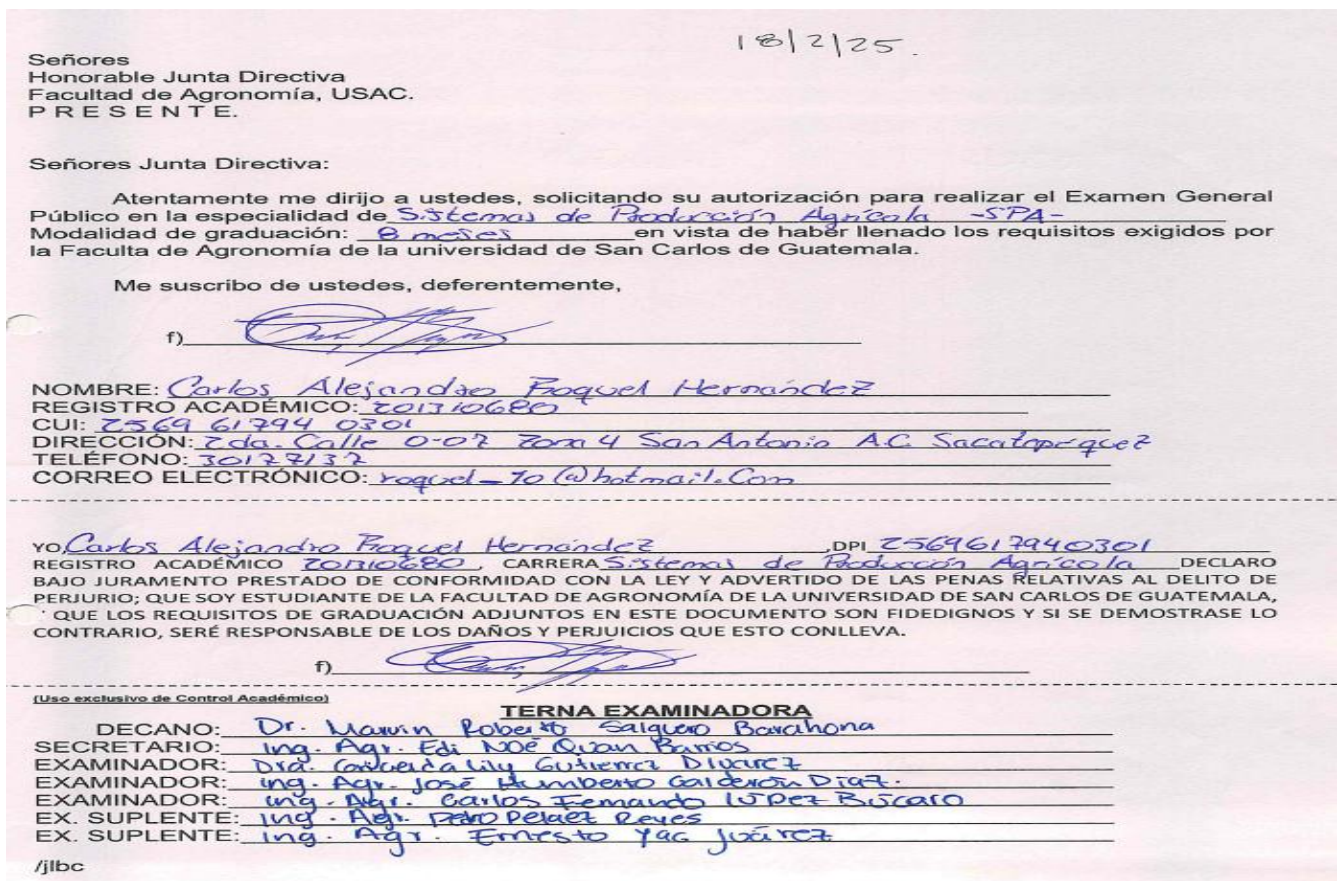 18/2/25.
Señores
Honorable Junta Directiva
Facultad de Agronomía, USAC.
P R E S E N T E.
Señores Junta Directiva:
Atentamente me dirijo a ustedes, solicitando su autorización para realizar el Examen General
Público en la especialidad de Sistemas de Producción Agrícola -SPA-
Modalidad de graduación: 8 meses en vista de haber llenado los requisitos exigidos por
la Faculta de Agronomía de la universidad de San Carlos de Guatemala.
Me suscribo de ustedes, deferentemente,
f)
NOMBRE: Carlos Alejandro Roquel Hernández
REGISTRO ACADÉMICO: 201310680
CUI: 2569 61794 0301
DIRECCIÓN: 2da. Calle 0-07 Zona 4 San Antonio A.C. Sacatepequez
TELÉFONO: 30127132
CORREO ELECTRÓNICO: roquel_10@hotmail.com
YO, Carlos Alejandro Roquel Hernández ,DPI 2569617940301
REGISTRO ACADÉMICO 201310680, CARRERA Sistemas de Producción Agrícola DECLARO
BAJO JURAMENTO PRESTADO DE CONFORMIDAD CON LA LEY Y ADVERTIDO DE LAS PENAS RELATIVAS AL DELITO DE
PERJURIO; QUE SOY ESTUDIANTE DE LA FACULTAD DE AGRONOMÍA DE LA UNIVERSIDAD DE SAN CARLOS DE GUATEMALA,
QUE LOS REQUISITOS DE GRADUACIÓN ADJUNTOS EN ESTE DOCUMENTO SON FIDEDIGNOS Y SI SE DEMOSTRASE LO
CONTRARIO, SERÉ RESPONSABLE DE LOS DAÑOS Y PERJUICIOS QUE ESTO CONLLEVA.
f)
(Uso exclusivo de Control Académico)
TERNA EXAMINADORA
DECANO: Dr. Marvin Roberto Salguero Barahona
SECRETARIO: Ing. Agr. Edi Noé Quan Barrios
EXAMINADOR: Dra. Lily Gutierrez Alvarez
EXAMINADOR: Ing. Agr. José Humberto Calderón Diaz.
EXAMINADOR: Ing. Agr. Carlos Fernando López Búcaro
EX. SUPLENTE: Ing. Agr. Pedro Peláez Reyes
EX. SUPLENTE: Ing. Agr. Ernesto Yac Juárez
/jlbc